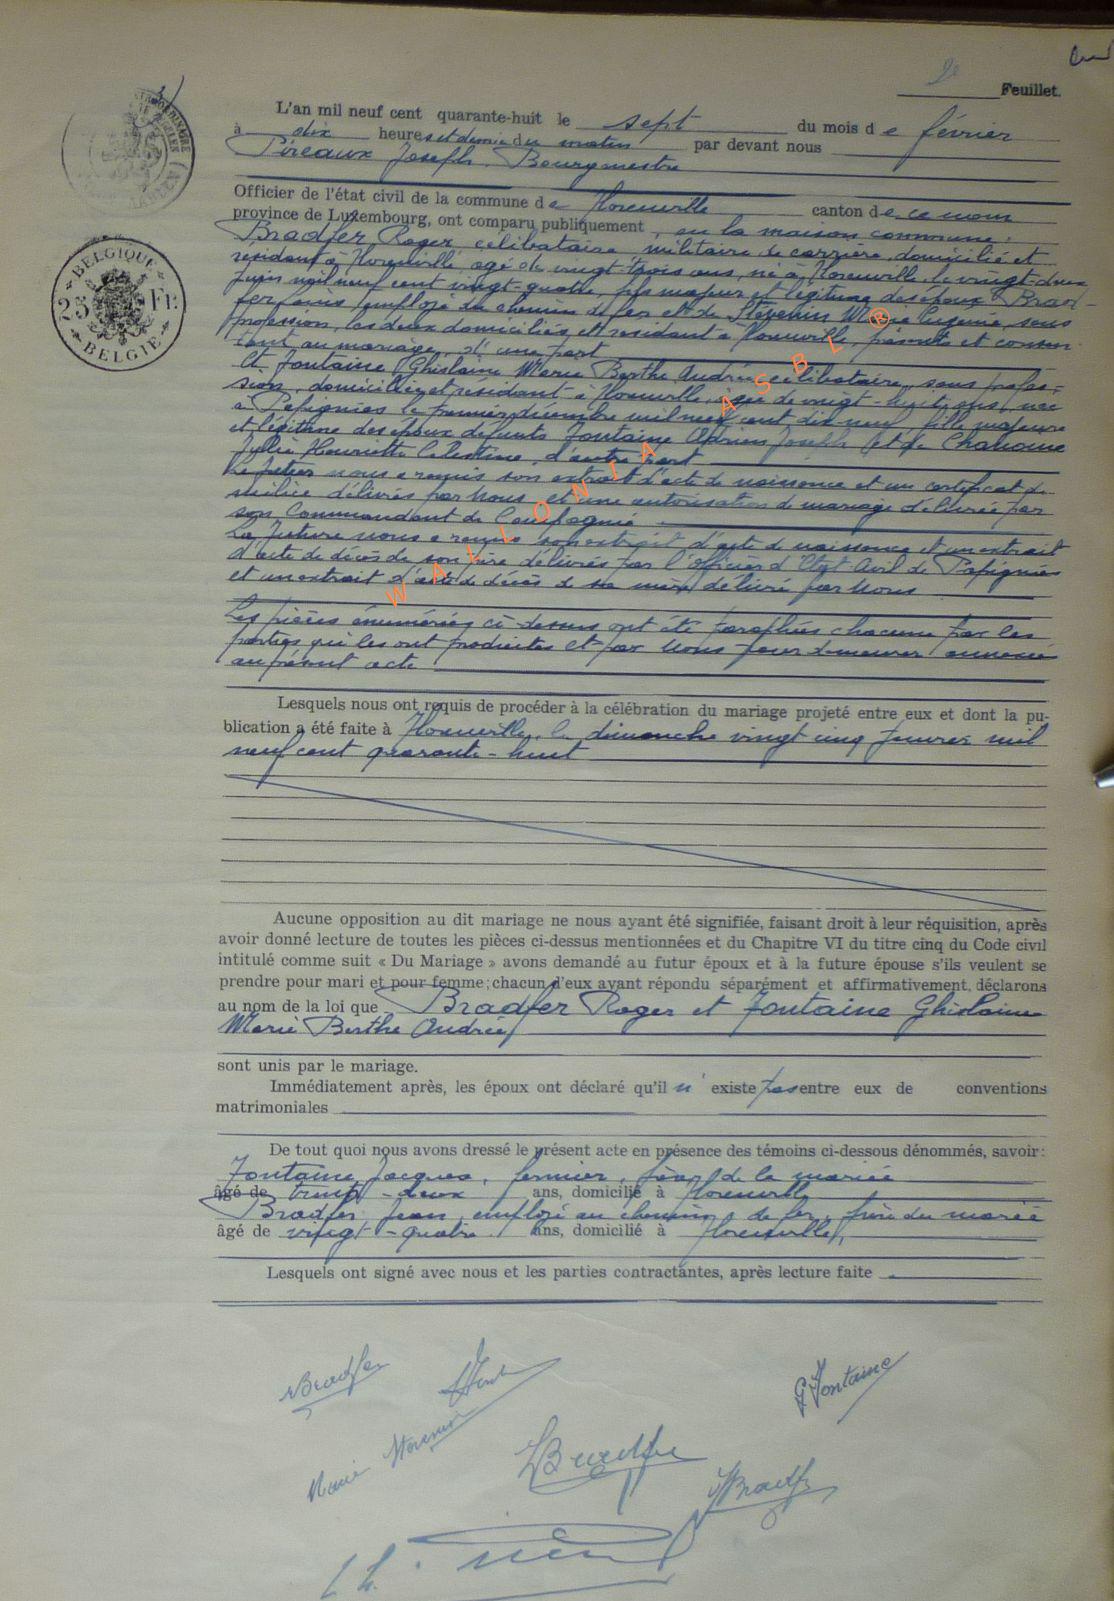 2e Feuillet.
L'an mil neuf cent quarante-huit le sept du mois de février
à dix heures et demie du matin par devant nous
Pireaux Joseph, Bourgmestre
Officier de l'état civil de la commune de Florenville canton de ce nom
province de Luxembourg, ont comparu publiquement, en la maison commune:
Bradfer Roger, célibataire, militaire de carrière, domicilié et
résidant à Florenville, agé de vingt-trois ans, né à Florenville, le vingt-deux
juin mil neuf cent vingt-quatre, fils majeur et légitime des époux Brad-
fer employé au chemin de fer et de Stevenin Marie Eugénie, sans
profession, les deux domiciliés et résidant à Florenville, présents et consen-
tant au mariage, d'une part
Et Fontaine Ghislaine Marie Berthe Andrée, célibataire, sans profes-
sion, domiciliée et résidant à Florenville, agée de vingt-huit ans, née
à Papignies le premier décembre mil neuf cent dix-neuf, fille majeure
et légitime des époux défunts Fontaine Adrien Joseph et de Chanoine
Julie Henriette Célestine, d'autre part
Le futur nous a remis son extrait d'acte de naissance et un certificat de
milice délivrés par Nous et une autorisation de mariage délivrée par
son Commandant de Compagnie
La future nous a remis son extrait d'acte de naissance et un extrait
d'acte de décès de son père délivrés par l'officier d'Etat Civil de Papignies
et un extrait d'acte de décès de sa mère délivré par Nous
Les pièces énumérées ci-dessus ont été paraphées chacune par les
parties qui les ont produites et par Nous pour demeurer annexées
au présent acte
Lesquels nous ont requis de procéder à la célébration du mariage projeté entre eux et dont la pu-
blication a été faite à Florenville, le dimanche vingt cinq janvier mil
neuf cent quarante-huit
Aucune opposition au dit mariage ne nous ayant été signifiée, faisant droit à leur réquisition, après
avoir donné lecture de toutes les pièces ci-dessus mentionnées et du Chapitre VI du titre cinq du Code civil
intitulé comme suit « Du Mariage » avons demandé au futur époux et à la future épouse s'ils veulent se
prendre pour mari et pour femme; chacun d'eux ayant répondu séparément et affirmativement, déclarons
au nom de la loi que Bradfer Roger et Fontaine Ghislaine
Marie Berthe Andrée
sont unis par le mariage.
Immédiatement après, les époux ont déclaré qu'il n'existe pas entre eux de conventions
matrimoniales
De tout quoi nous avons dressé le présent acte en présence des témoins ci-dessous dénommés, savoir:
Fontaine Jacques, fermier, frère de la mariée
âgé de trente-deux ans, domicilié à Florenville
Bradfer Jean, employé au chemin de fer, frère du marié
âgé de vingt-quatre ans, domicilié à Florenville,
Lesquels ont signé avec nous et les parties contractantes, après lecture faite.
Bradfer
G Fontaine
Marie Stevenin
Bradfer
JBradfer
BELGIQUE
25 Fr.
BELGIË
WALLONIA ASBL ®